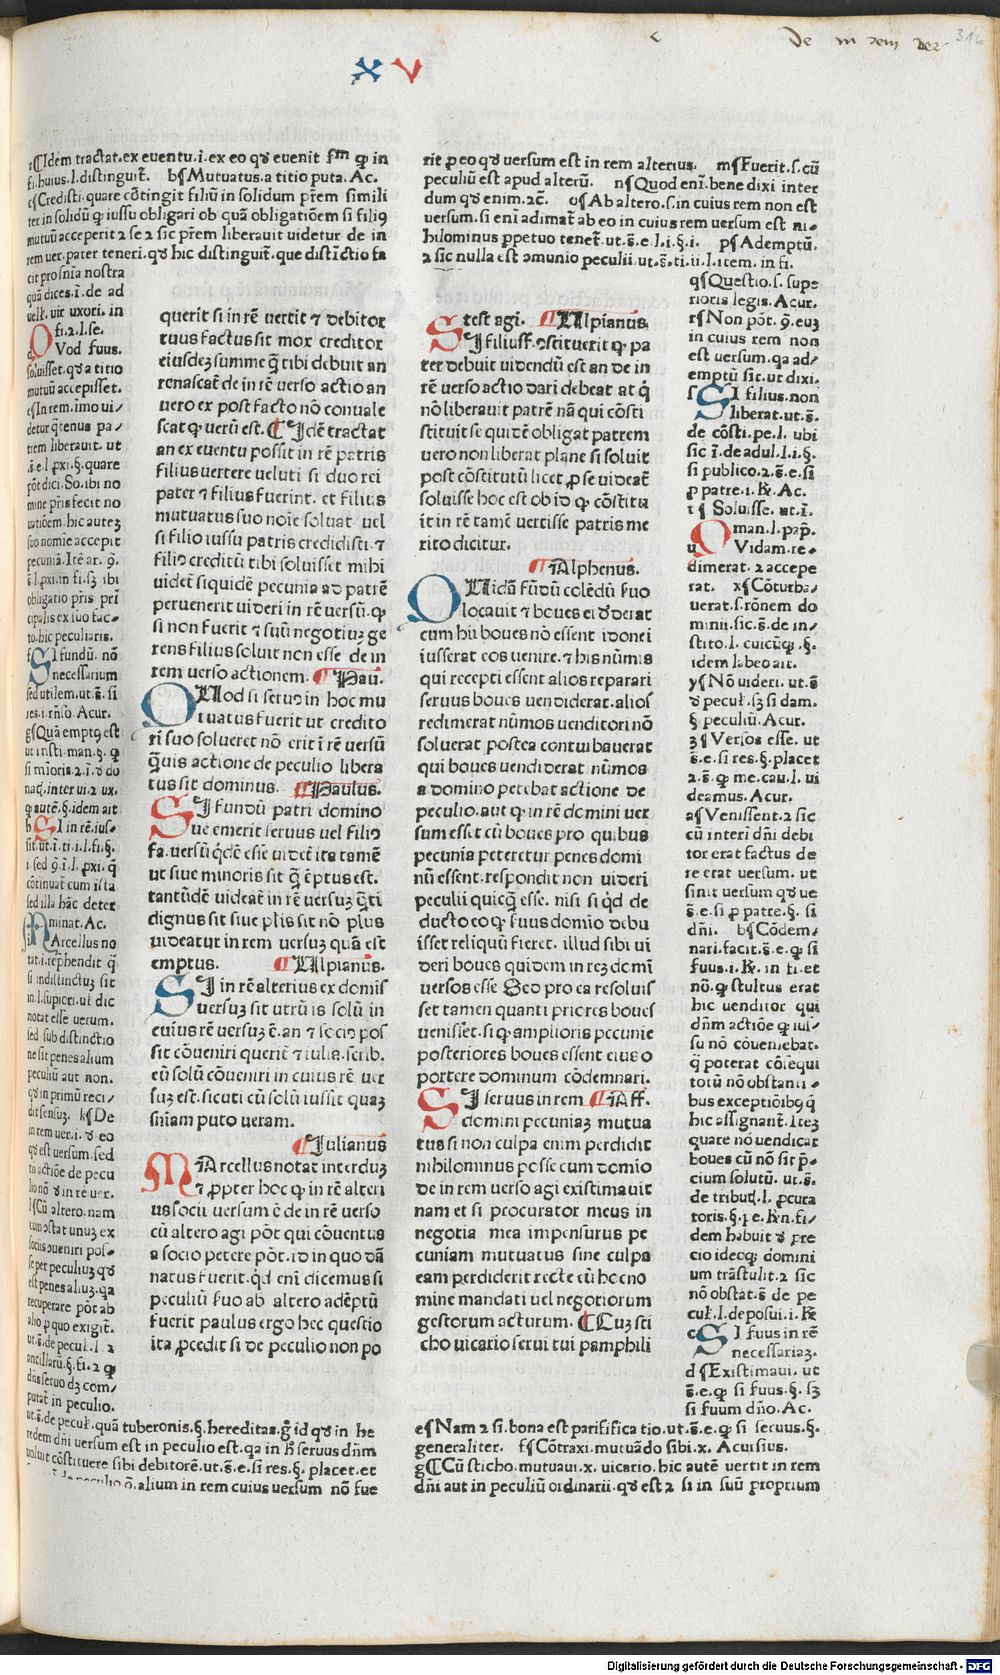 De in rem ver. 316
XV
¶Idem tractat.ex eventu.i.ex eo qđ evenit fm qꝫ in
fi.huius.l.distinguit̄. b¶Mutuatus.a titio puta.Ac.
c¶Credisti.quare cōtingit filiū in solidum pr̄em simili
ter in solidū qꝫ iussu obligari ob quā obligatiōem si filiꝯ
mutuū acceperit ⁊ se ⁊ sic pr̄em liberavit videtur de in
rem ver.pater teneri.qđ hic distinguit̄.que distīctio fa
cit pro sn̄ia nostra
quā dices.ī.de ad
uelł.vir uxori.in
fi.⁊.l.se.
d Vod fuus.
soluisset.qđ a titio
mutuū accepisset.
e¶In rem.imo vi/
detur q̄tenus pa/
trem liberavit. ut
s̄.e.l ꝓxi.§.quare
pōt dici.So.ibi no
mine pr̄is fecit no
uatiōem.hic autez
suo nomīe accepit
pecuniā.Itē ar. 9.
s̄.l.ꝓxi.in fi.sꝫ ibi
obligatio pr̄is prī
cipalis ex suo fac/
to.hic peculiaris.
f SI fundū. nō
necessarium
sed utilem.ut.s̄. si
res.i.rn̄so.Acur.
g¶Quā emptꝯ est
ut insti.man.§. qꝫ
si mīoris.⁊.ī.đ do
nat.inter vi.⁊ ux.
qꝫ autē.§.idem ait
h SI in rē.ius/
sit.ut.ī.ti.i.l.fi.§.
i sed 9.ī.l.ꝓxi. q̄
cōtinuat̄ cum ista
sed illa hāc deter
minat.Ac.
Marcellus no
tat.i.rep̄hendit q̄
si indistinctꝫ sit
in.l.supiori.ut dic
notat esse verum.
sed sub distinctio
ne sit penes alium
peculiū aut non.
qđ in primū reci/
dit sensuꝫ. k¶De
in rem ver.i. đ eo
qđ est versum.sed
in actiōe de pecu
lio nō đ in rē ver.
l¶Cū altero.nam
cum ostat unuꝫ ex
sociis ɔveniri pos/
se per peculiuꝫ qđ
est penes aliuꝫ.q̄a
recuperare pōt ab
alio ꝓ quo exigit̄.
ut.s̄.de pecul.l. ⁊
ancillarū.§.fi.⁊ qꝫ
dn̄s servo dꝫ com/
putat̄ in peculio.
ut.s̄.de peculł.quā tuberonis.§.hereditas.ḡ id qđ in he
redem dn̄i versum est in peculio est.qa in h̄ servus dn̄m
voluit cōstituere sibi debitorē.ut.s̄.e.si res.§.placet.et
de peculio ō.alium in rem cuius versum nō fue
querit si in rē vertit ⁊ debitor
tuus factus sit mox creditor
eiusdeꝫ summe q̄ tibi debuit an
renascat̄ de in rē verso actio an
vero ex post facto nō convale
scat qꝫ verū est.¶Idē tractat
an ex eventu possit in rē patris
filius vertere veluti si duo rei
pater ⁊ filius fuerint. et filius
mutuatus suo noīe solvat vel
si filio iussu patris credidisti.⁊
filio creditū tibi solvisset mihi
videt̄ siquidē pecunia ad patrē
pervenerit videri in rē versū.qꝫ
si non fuerit ⁊ suū negotiuꝫ ge
rens filius soluit non esse de in
rem verso actionem. ¶Pau.
QUod si servus in hoc mu
tuatus fuerit ut credito
ri suo solveret nō erit ī rē versū
q̄vis actione de peculio libera
tus sit dominus. ¶Paulus.
SI fundū patri domino
ve emerit servus vel filiꝯ
fa.versū q̄dē esse videt̄ ita tamē
ut sive minoris sit q̄ ēptus est.
tantūdē videat̄ in rē versuꝫ q̄ti
dignus sit sive plīs sit nō plus
videatur in rem versuꝫ quā est
emptus. ¶Ulpianus.
SI in rē alterius ex domīs
versuꝫ sit utrū is solū in
cuius rē versuꝫ ē.an ⁊ sociꝯ pos
sit cōveniri querit̄ ⁊ iulia.scrib.
eū solū cōveniri in cuius rē ver
suꝫ est.sicuti cū solū iussit quaꝫ
sn̄iam puto veram.
¶Julianus
MArcellus notat interduꝫ
⁊ ꝓpter hoc qꝫ in rē alteri
us socii versum ē de in rē verso
cū altero agi pōt qui cōventus
a socio petere pōt.id in quo dā
natus fuerit.qđ enī dicemus si
peculiū fuo ab altero adēptū
fuerit paulus ergo hec questio
ita ꝓcedit si de peculio non po
rit ꝓ eo qđ versum est in rem alterius. m¶Fuerit.s.cū
peculiū est apud alterū. n¶Quod enī.bene dixi inter
dum qđ enim.⁊c̄. o¶Ab altero.s.in cuius rem non est
versum.si enī adimat̄ ab eo in cuius rem versum est ni/
hilominus ꝑpetuo tenet̄.ut.s̄.e.l.i.§.i. p¶Ademptū.
⁊ sic nulla est ɔmunio peculii.ut.s̄.ti.ii.l.item.in fi.
test agi. ¶Ulpianus.
SI filiusf̄.ɔstituerit qꝫ pa
ter debuit videndū est an de in
rē verso actio dari debeat at q̄
nō liberavit patrē nā qui cōsti
stituit se quidē obligat patrem
vero non liberat plane si soluit
post cōstitutū licet ꝓ se videat̄
solvisse hoc est ob id qꝫ cōstitu
it in rē tamē vertisse patris me
rito dicitur.
¶Alphenus.
QUidā fūdū colēdū fuo
locavit ⁊ boves ei đderat
cum hii boves nō essent idonei
iusserat eos venire.⁊ his nūmis
qui recepti essent alios reparari
servus boves vendiderat.alios
redimerat nūmos venditori nō
solverat postea conturbaverat
qui boves vendiderat nūmos
a domino petebat actione de
peculio.aut qꝫ in rē domini ver
sum esset cū boves pro quibus
pecunia peteretur penes domi
nū essent.respondit non videri
peculii quicq̄ esse. nisi si qđ de
ducto eo qꝫ fuus domīo debu
isset reliquū fieret. illud sibi vi
deri boves quidem in reꝫ domī
versos esse Sed pro ea resolvis
set tamen quanti priores boves
venissēt.si qꝫ amplioris pecunie
posteriores boves essent eius o
portere dominum cōdemnari.
SI servus in rem ¶Aff.
domini pecuniaꝫ mutua
tus si non culpa enim perdidit
nihilominus posse cum domīo
de in rem verso agi existimavit
nam et si procurator meus in
negotia mea impensurus pe
cuniam mutuatus sine culpa
eam perdiderit recte cū hoc no
mine mandati vel negotiorum
gestorum acturum. ¶Cuꝫ sti
cho vicario servi tui pamphili
q¶Questio.s. supe
rioris legis. Acur.
r¶Non pōt. 9.euꝫ
in cuius rem non
est versum.qa ad/
emptū sit.ut dixi.
s SI filius.non
liberat.ut.s̄.
de cōsti.pe.l. ubi
sic ī.de adul.l.i.§.
si publico.⁊.s̄.e.si
ꝓ patre.i.R̄. Ac.
t¶ Solvisse. ut.ī.
man.l.pap̄.
u QUidam.re/
dimerat. ⁊ accepe
rat. x¶Cōturba/
verat.s.rōnem do
minii.sic.s̄.de in/
stito.l. cuicūqꝫ.§.
idem labeo ait.
y¶Nō videri. ut.s̄
đ pecuł.sꝫ si dam.
§ peculiū.Acur.
z¶Versos esse. ut
s̄.e.si res.§.placet
⁊.s̄.qꝫ me.cau.l. vi
deamus. Acur.
a¶Venissent.⁊ sic
cū interī dn̄i debi
tor erat factus de
re erat versum. ut
sinit versum qđ ve
s̄.e.si ꝓ patre.§. si
dn̄i. b¶Cōdem/
nari.facit.s̄.e.qꝫ si
fuus.i.R̄. in fi.et
nō.qꝫ stultus erat
hic venditor qui
dn̄m actiōe qꝫ ius/
su nō cōveniebat.
q̄ poterat cōseq̄ui
totū nō obstanti/
bus exceptiōibꝯ q̄
hic assignant̄.Iteꝫ
quare nō vendicat
boves cū nō sit p̄/
cium solutū. ut.s̄.
de tribut.l. ꝓcura
toris.§.i e. R̄.n.fi/
dem habuit đ pre
cio ideoqꝫ domini
um trāstulit.⁊ sic
nō obstat.s̄ de pe
cuł.l.deposui.i.R̄
c SI fuus in rē
necessariaꝫ.
d¶Existimavi. ut
s̄.e.qꝫ si fuus.§. sꝫ
si fuum dn̄o.Ac.
e¶Nam ⁊ si.bona est parisifica tio.ut.s̄.e.qꝫ si servus.§.
generaliter. f¶Cōtraxi.mutuādo sibi.x. Acursius.
g¶Cū sticho.mutuavi.x. vicario.hic autē vertit in rem
dn̄i aut in peculiū ordinarii.qđ est ⁊ si in suū proprium
Digitalisierung gefördert durch die Deutsche Forschungsgemeinschaft - DFG